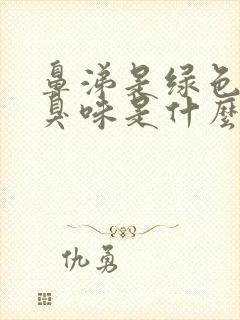 鼻涕是绿色
臭味是什麼
仇勇